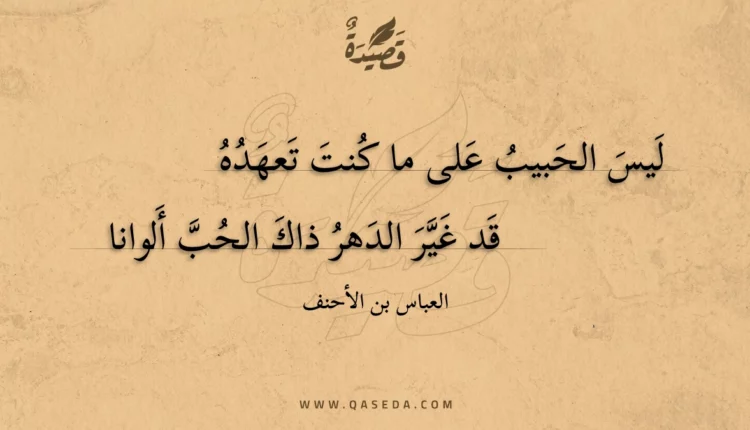 قَصِيدَةٌ
لَيسَ الحَبيبُ عَلى ما كُنتَ تَعهَدُهُ
قَد غَيَّرَ الدَهرُ ذاكَ الحُبَّ أَلوانا
العباس بن الأحنف
WWW.QASEDA.COM